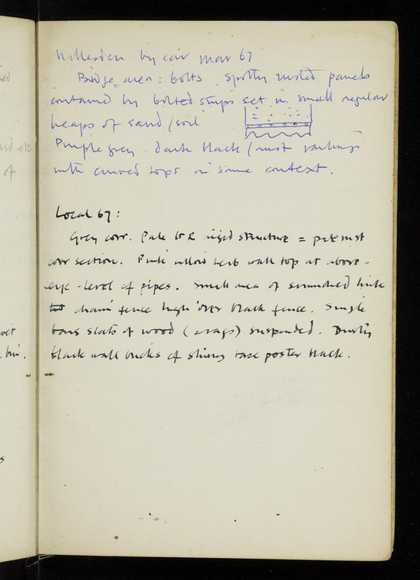 Willesden by car Mar 67
Bridge area: bolts. spotty rusted panels
contained by bolted strips set in small regular
heaps of sand / soil
Purple grey dark black / rust railings
with curved tops in same context.
Local 67:
Grey corr. Pale structure =
corr section. Pink willow herb wall top at above-
eye-level of pipes. Small area of link
chain fence high over black fence. Single
slats of wood suspended. Dusty
black wall bricks of shiny base poster black.